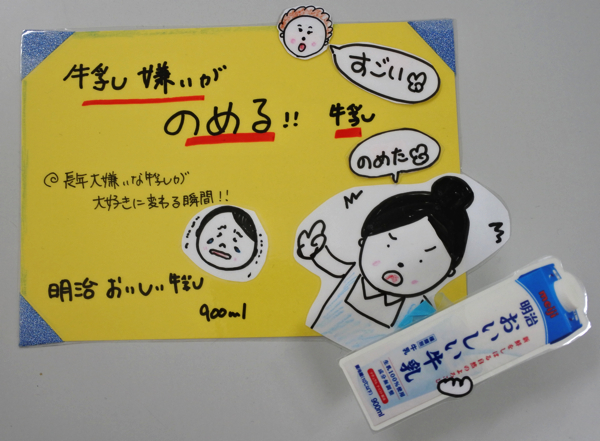 牛乳し 嫌いが
すごい
のめる!! 牛乳し
のめた
◎長年大嫌いな牛乳しが
大好きに変わる瞬間!!
明治 おいしい牛乳し
900ml
meiji
明治
おいしい牛乳
900ml